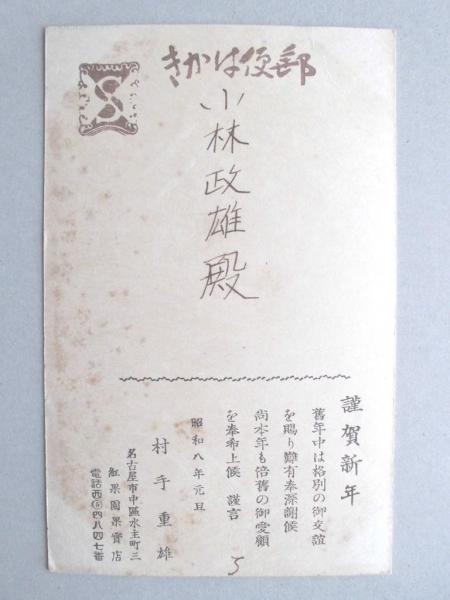 きかは便郵
小林政雄殿
謹賀新年
舊年中は格別の御交誼
を賜り難有奉深謝候
尚本年も倍舊の御愛顧
を奉希上候 謹言
昭和八年元旦
村手重雄
名古屋市中區水主町三
紅果園果實店
電話西㊄四八四七番
5